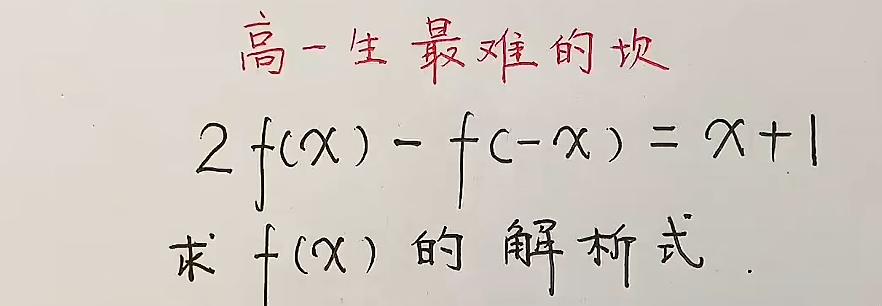 高一生最难的坎
2f(x)-f(-x)=x+1
求f(x)的解析式.